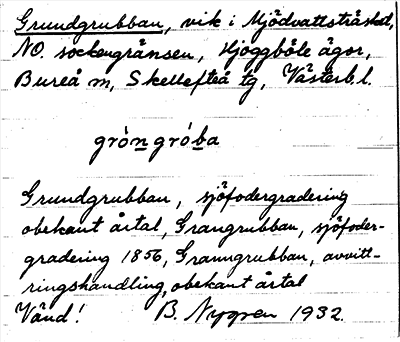 Grundgrubban, vik i Mjödvattsträsket,
NO. sockengränsen, Hjoggböle ägor,
Bureå sn, Skellefteå tg, Västerb. l.
gròngróba
Grundgrubban, sjöfodergradering
obekant årtal, Grangrubban, sjöfoder-
gradering 1856, Granngrubban, avvitt-
ringshandling, obekant årtal
Vänd! B. Nygren 1932.